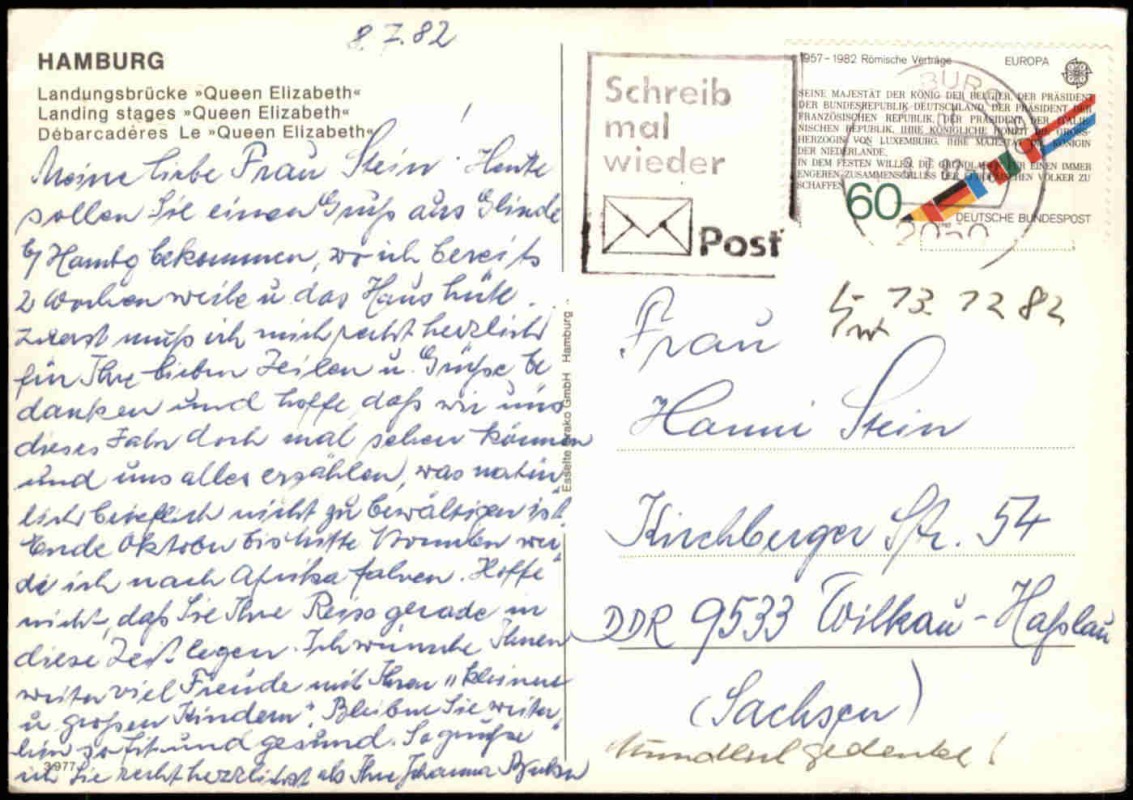 8.7.82
HAMBURG
Landungsbrücke »Queen Elizabeth«
Landing stages »Queen Elizabeth«
Débarcadères Le »Queen Elizabeth«
Meine liebe Frau Stein! Heute
sollen Sie einen Gruß aus Glinde
b/ Hambg bekommen, wo ich bereits
2 Wochen weile u das Haus hüte.
Zuerst muß ich mich recht herzlich
für Ihre lieben Zeilen u. Grüße be
danken und hoffe, daß wir uns
dieses Jahr doch mal sehen können
und uns alles erzählen, was natür
lich brieflich nicht zu bewältigen ist.
Ende Oktober bis Mitte November wer
de ich nach Afrika fahren. Hoffe
nicht, daß Sie Ihre Reise gerade in
diese Zeit legen. Ich wünsche Ihnen
weiter viel Freude mit Ihren "kleinen
u. großen Kindern". Bleiben Sie weiter
hin so fit und gesund. So grüße
ich Sie recht herzlichst als Ihre Johanna
3977
Esselte GmbH Hamburg
Schreib
mal
wieder
Post
1957-1982 Römische Verträge
EUROPA
SEINE MAJESTÄT DER KÖNIG DER BELGIER, DER PRÄSIDENT
DER BUNDESREPUBLIK DEUTSCHLAND, DER PRÄSIDENT DER
FRANZÖSISCHEN REPUBLIK, DER PRÄSIDENT DER ITALIE-
NISCHEN REPUBLIK, IHRE KÖNIGLICHE HOHEIT DIE GROSS-
HERZOGIN VON LUXEMBURG, IHRE MAJESTÄT DIE KÖNIGIN
DER NIEDERLANDE,
IN DEM FESTEN WILLEN, DIE GRUNDLAGEN FÜR EINEN IMMER
ENGEREN ZUSAMMENSCHLUSS DER EUROPÄISCHEN VÖLKER ZU
SCHAFFEN
60
DEUTSCHE BUNDESPOST
BURG
13. 12 82
Frau
Hanni Stein
Kirchberger Str. 54
DDR 9533 Wilkau-Haßlau
(Sachsen)
gedenke!